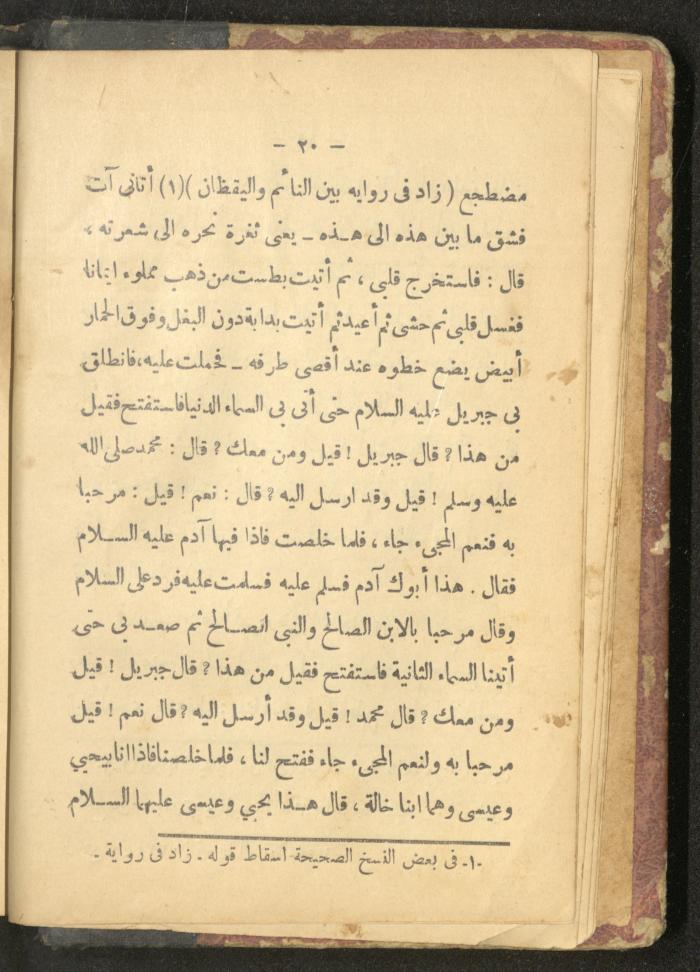 — ٢٠ —
مضطجع ( زاد فى روايه بين النائم واليقظان )(١) أتانى آت
فشق ما بين هذه الى هـذه – يعنى ثغرة نحره الى شعرته ،
قال : فاستخرج قلبى ، ثم أتيت بطست من ذهب مملوء ايمانا
فغسل قلبى ثم حشى ثم أعيد ثم أتيت بدابة دون البغل وفوق الحمار
أبيض يضع خطوه عند أقصى طرفه – فحملت عليه،فانطلق
بى جبريل عليه السلام حتى أتى بى السماء الدنيا فاستفتح فقيل
من هذا ? قال جبريل ! قيل ومن معك ? قال : محمد صلى الله
عليه وسلم ! قيل وقد ارسل اليه ? قال : نعم ! قيل : مرحبا
به فنعم المجىء جاء ، فلما خلصت فاذا فيها آدم عليه السـلام
فقال . هذا أبوك آدم فسلم عليه فسلمت عليه فرد على السلام
وقال مرحبا بالابن الصالح والنبى الصـالح ثم صعـد بى حتى
أتينا السماء الثانية فاستفتح فقيل من هذا ? قال جبريل ! قيل
ومن معك ? قال محمد ! قيل وقد أرسل اليه ? قال نعم ! قيل
مرحبا به ولنعم المجىء جاء ففتح لنا ، فلما خلصنا فاذا انا بيحيي
وعيسى وهما ابنا خالة ، قال هـذا يحيي وعيسى عليهما السـلام
-١- فى بعض النسخ الصحيحة اسقاط قوله - زاد فى رواية -